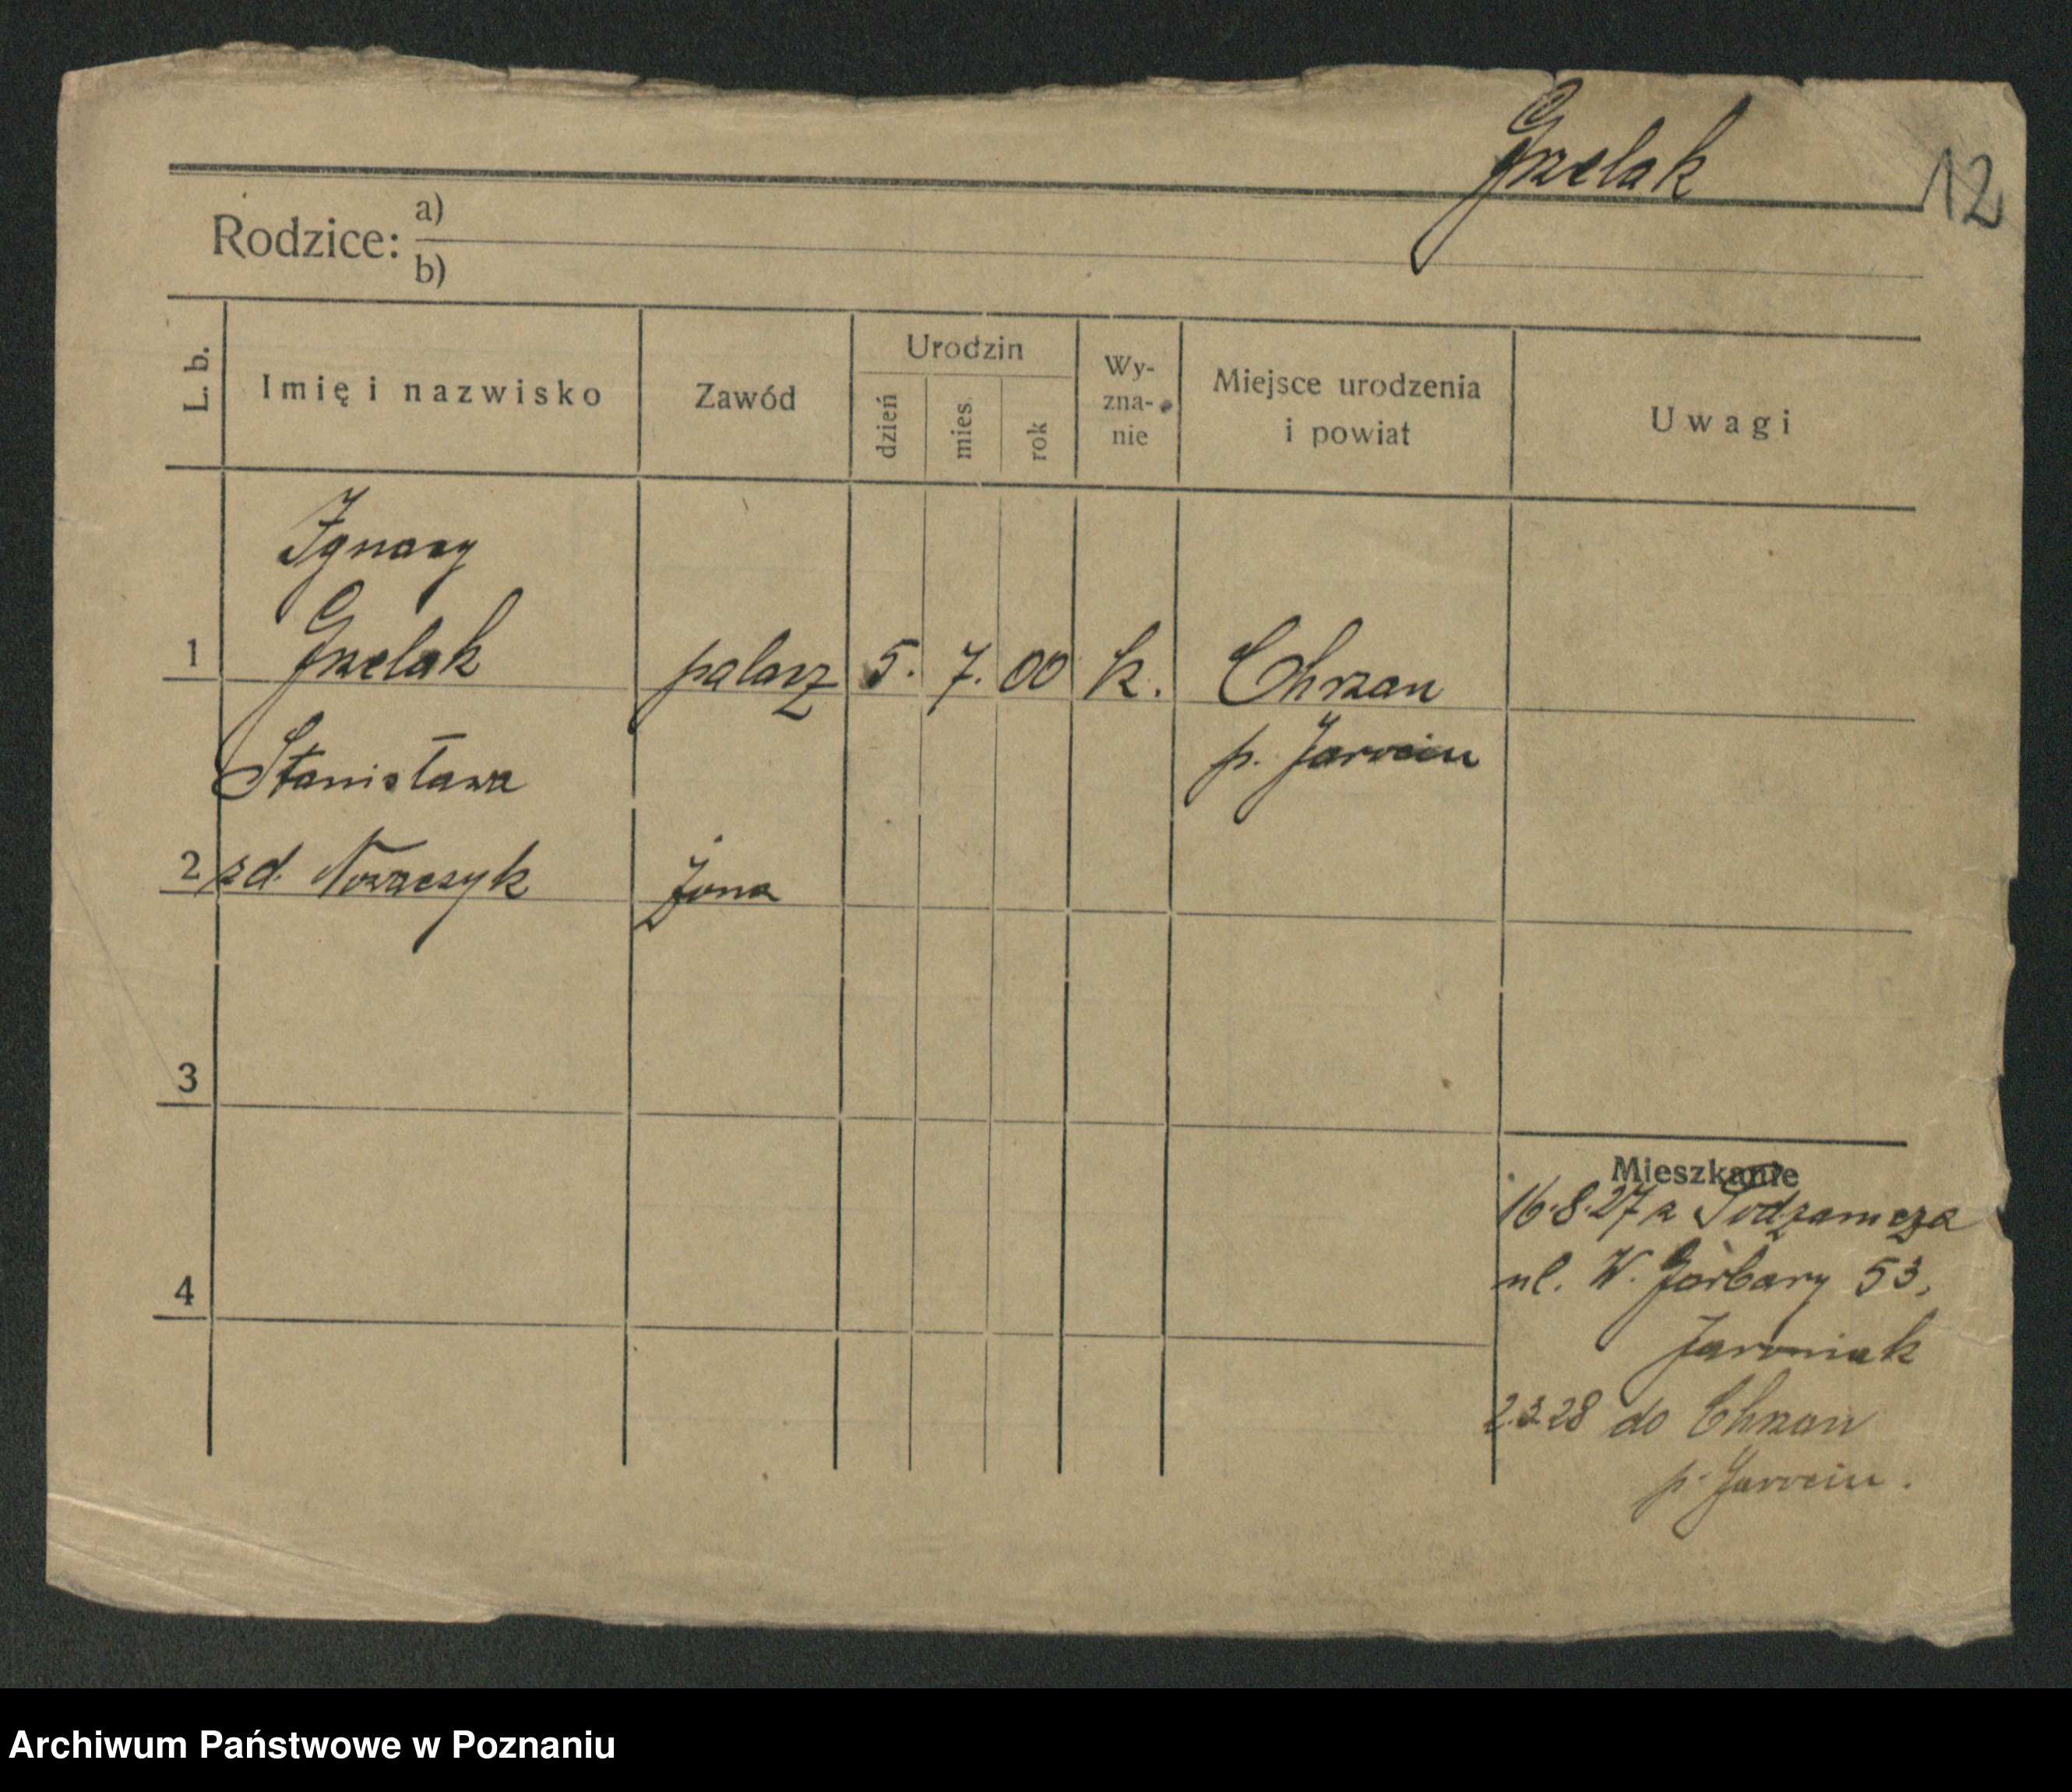 Grzelak
12
Rodzice: a)
b)
L. b.
Imię i nazwisko
Zawód
Urodzin
dzień
mies.
rok
Wy-
zna-
nie
Miejsce urodzenia
i powiat
Uwagi
Ignacy
1 Grzelak palacz 5. 7. 00 k. Chrzan
p. Jarocin
Stanisława
2 zd. Nowaczyk żona
3
4
Mieszkanie
16.8.27 z Podzamcza
ul. W. Garbary 53,
2.3.28 do Chrzan
p. Jarocin.
Archiwum Państwowe w Poznaniu